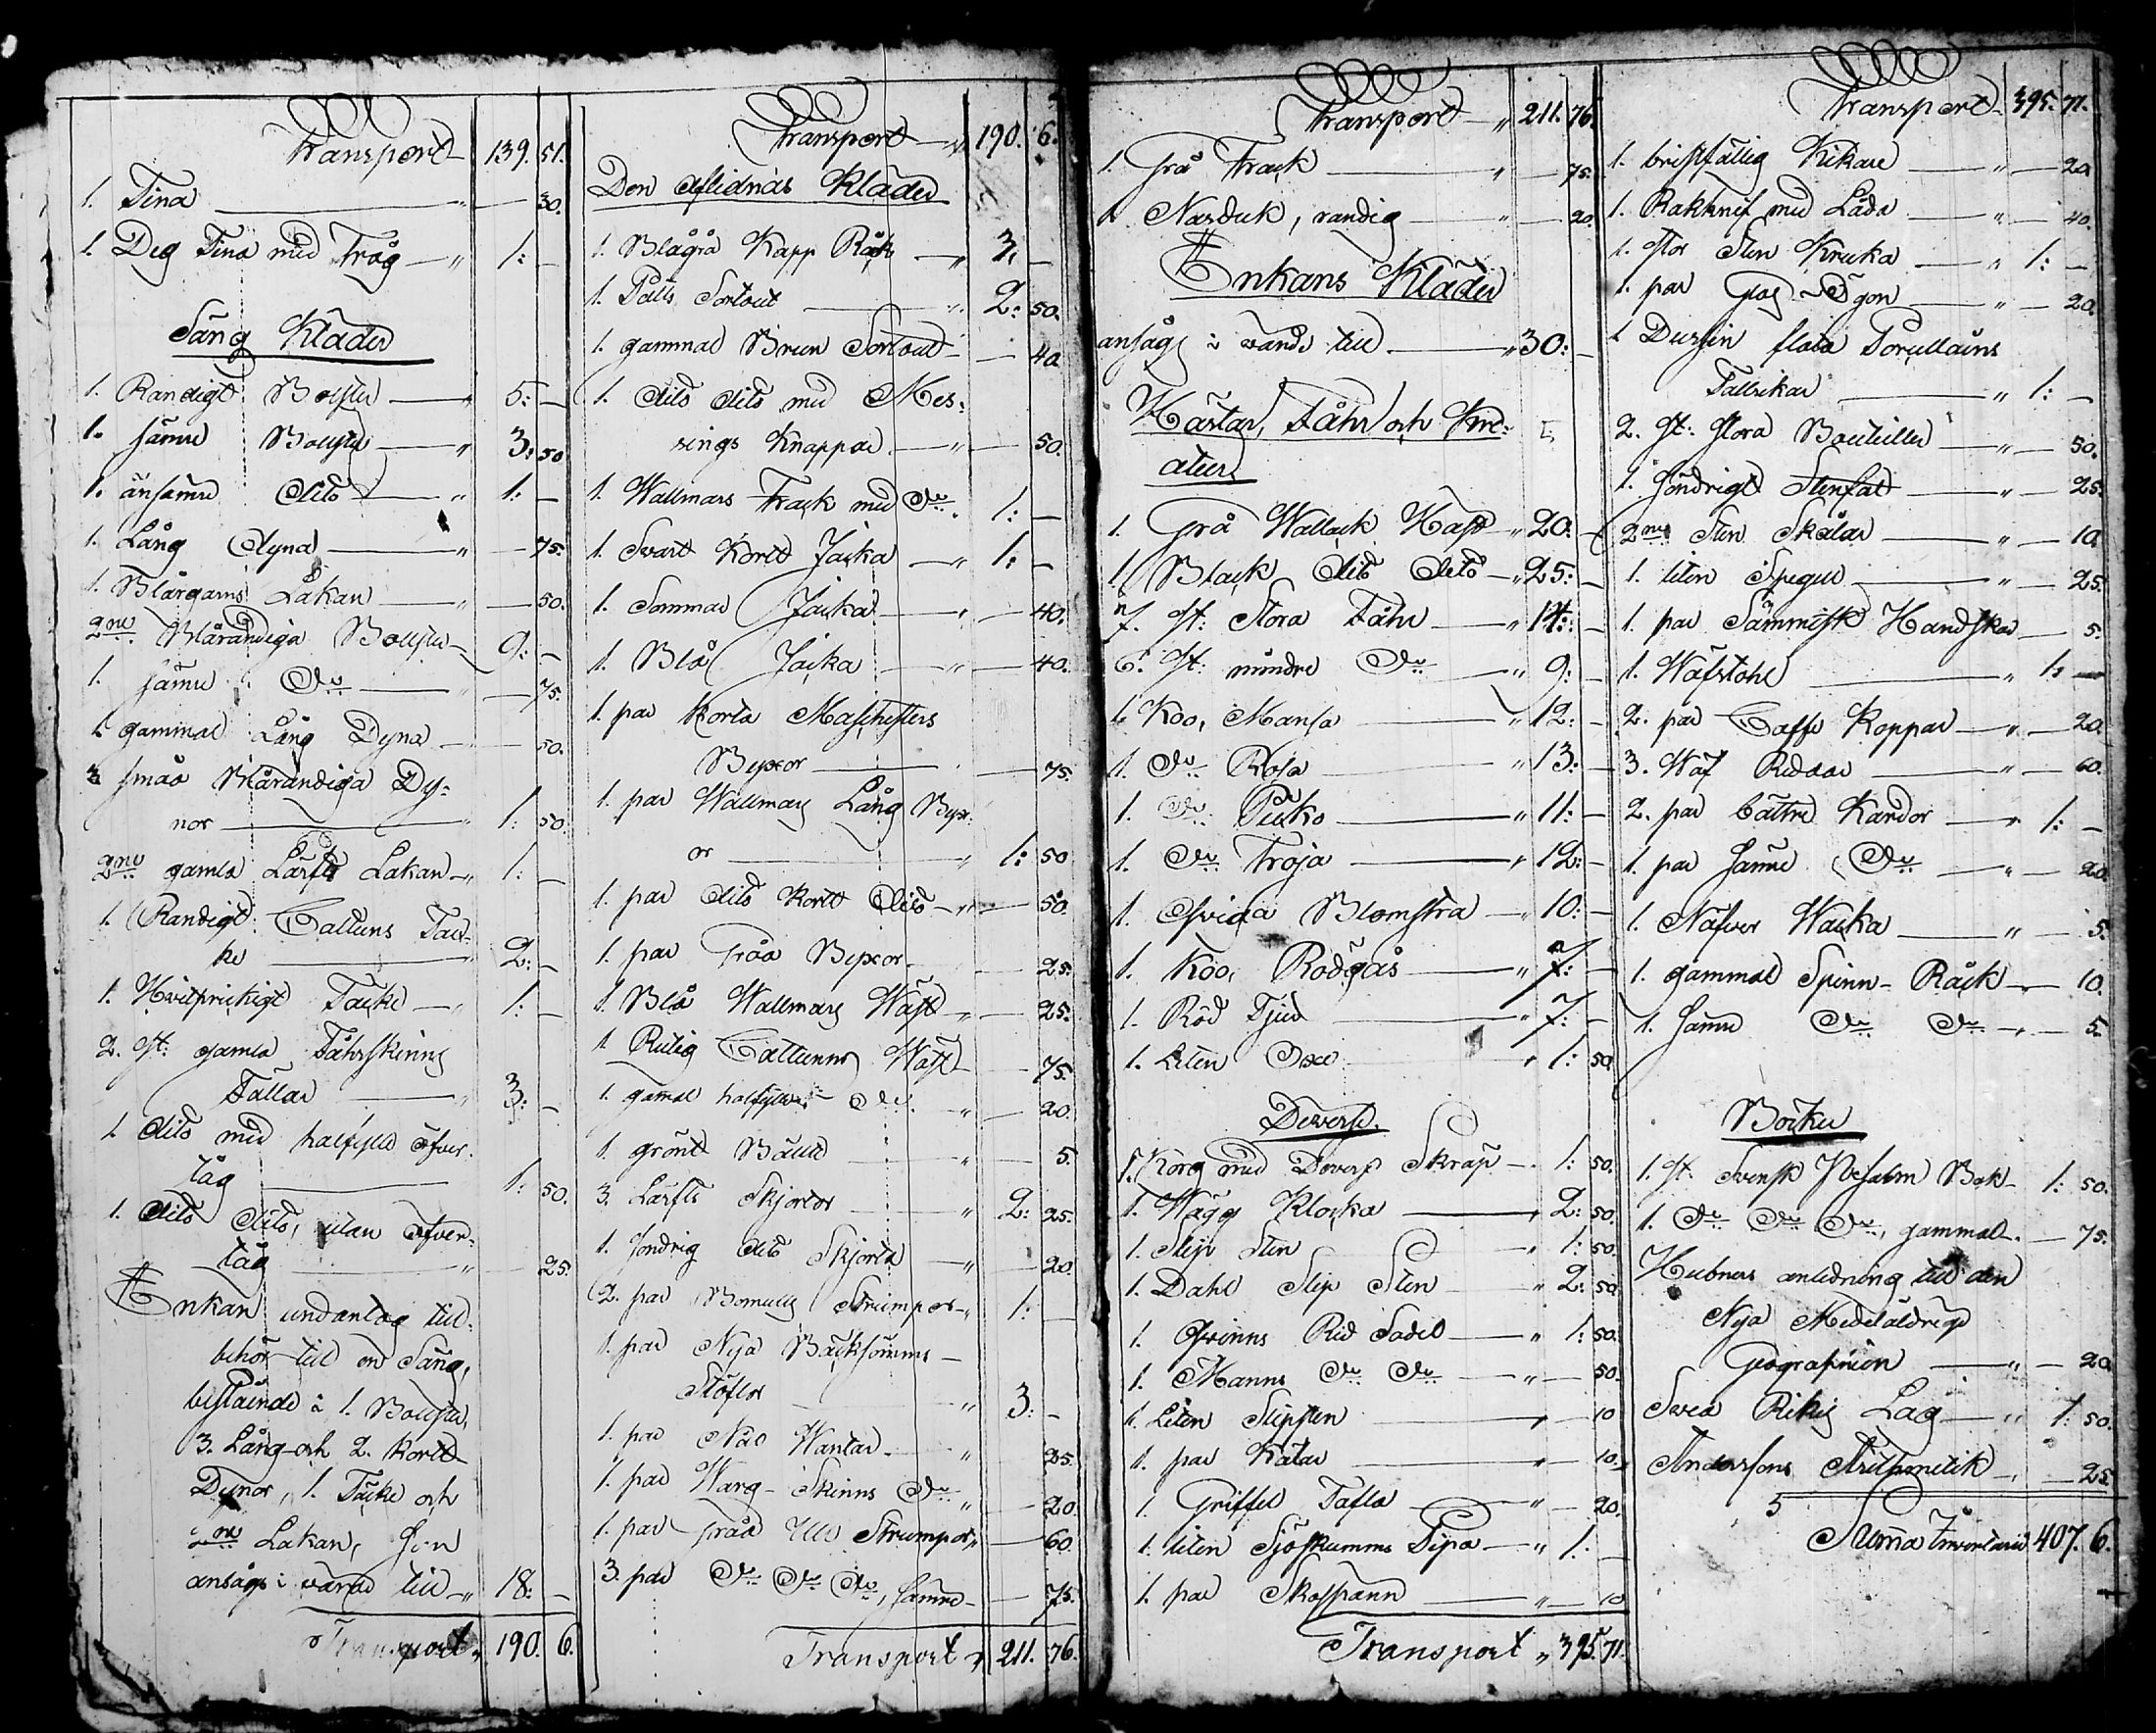 Transport 139. 51.
1. Tina " 30.
1. Deg Tina med Tråg " 1: —
Säng Kläder
1. Randigt Bolster " 5: —
1. sämre Bolster " 3: 50
1. änsämre dito " 1: —
1. Lång Dyna " 75.
1. Blårgarns Lakan " 50.
2ne Blårandiga Bolster 9: —
1. sämre Do " 75.
1. gammal Lång Dyna 50.
3 små Blårandiga Dy-
nor " 1: 50.
2ne gamla Lärfts Lakan " 1: —
1. Randigt Cattuns Täc-
ke 2: —
1. Hvitprickigt Täcke " 1: —
2. st: gamla Fåhrskinns
Fällar " 3: —
1 dito med halfylle öfver-
tåg 1: 50.
1. dito dito, utan öfver-
tåg " 25.
Enkan undantog till-
behör till en Säng,
bestående i 1. Bolster,
3. Lång och 2. Kortt
Dynor, 1. Täcke och
2ne Lakan, som
ansågs i värde till " 18: —
Transport " 190. 6.
Transport " 190. 6.
Den Aflidnas Kläder
1. Blågrå Kapp Råck " 3. —
1. Pälts Sortout " 2: 50.
1. gammal Brun Sortout — 40
1. dito dito med Mes-
sings Knappar " 50.
1. Wallmars Frack med Do. 1: —
1. Svart Kortt Jacka " 1: —
1. Sommar Jacka " 40.
1. Blå Jacka " 40.
1. par Korta Maschesters
Byxor 75.
1. par Wallmars Lång Byx-
or " 1: 50
1. par dito Kortt dito " 50.
1. par Gråa Byxor 25.
1. Blå Wallmars Wäst " 25.
1 Rutig Cattuns Wäst 75.
1. gamal halfylle Do. " 20.
1. grönt Bälte " 5.
3. Lärfts Skjortor " 2: 25.
1. söndrig dito Skjorta " 20.
2. par Bomulls Strumpor " 1: —
1. par Nya Bäcksömms
Stöflor " 3: —
1. par Nåt Wantar " 25.
1. par Warg-Skinns Do " 20.
1. par gråa Ulle Strumpor " 60.
3. par Do Do Do, sämre — 75.
Transport " 211. 76.
Transport " 211. 76.
1. Grå Frack " 75.
1. Näsduk, randig " 20.
Enkans Kläder
ansågs i värde till " 30: —
Hästar, Fåhr och Kre-
atur
1. Grå Wallack Häst " 20. —
1. Black dito dito " 25: —
7. st: Stora Fåhr " 14: —
6. st: mindre Do " 9: —
1. Koo, Mansa " 12: —
1. Do Rosa " 13: —
1. Do Piko " 11: —
1. Do Fröja " 12: —
1. Qviga Blomstra " 10: —
1. Koo, Rodgås " 7: —
1. Röd Tjur " 7: —
1. Liten Oxe " 1: 50
Diverse.
1. Korg med Diverse Skräp — 1: 50.
1. Wägg Klocka " 2: 50.
1. Slip Sten " 1: 50.
1. Dahl Slip Sten " 2: 50
1. Qvinns Rid Sadel " 1: 50.
1. Manns Do Do " 50.
1. Liten Slipsten " 10
1. par Kätar " 10.
1. Griffel Tafla " 20.
1. liten Sjöskumms Pipa " 1: —
1. par Skospänn " 10
Transport " 395. 71.
Transport 395. 71.
1. bristfällig Kikare " 20
1. Rakknif med Låda " 40.
1. stor Sten Kruka " 1: —
1. par Glas-Ögon " 20.
1 Dussin flata Porcellains
Tallrikar " 1: —
2. st: Stora Bouteiller " 50.
1. söndrigt Stenfat " 25.
2ne Sten Skålar " 10
1. liten Spegel " 25.
1. par Sämmisk Handskar — 5.
1. Wäfstohl " 1: —
2. par Caffe Koppar " 20.
3. Wäf Redar " 60.
2. par bättre Kardor " 1: —
1. par sämre Do " 20
1. Näfver Wäcka " 5.
1. gammal Spinn-Råck " 10.
1. sämre Do Do " 5.
Böcker
1. st. Svensk Psalm Bok — 1: 50.
1. Do Do Do, gammal — 75.
Hubners anledning till den
Nya Medeläldrige
Geografien " 20
Svea Rikes Lag " 1: 50.
Anderssons Aritmetik " 25
5
Summa Inventarie 407. 6.